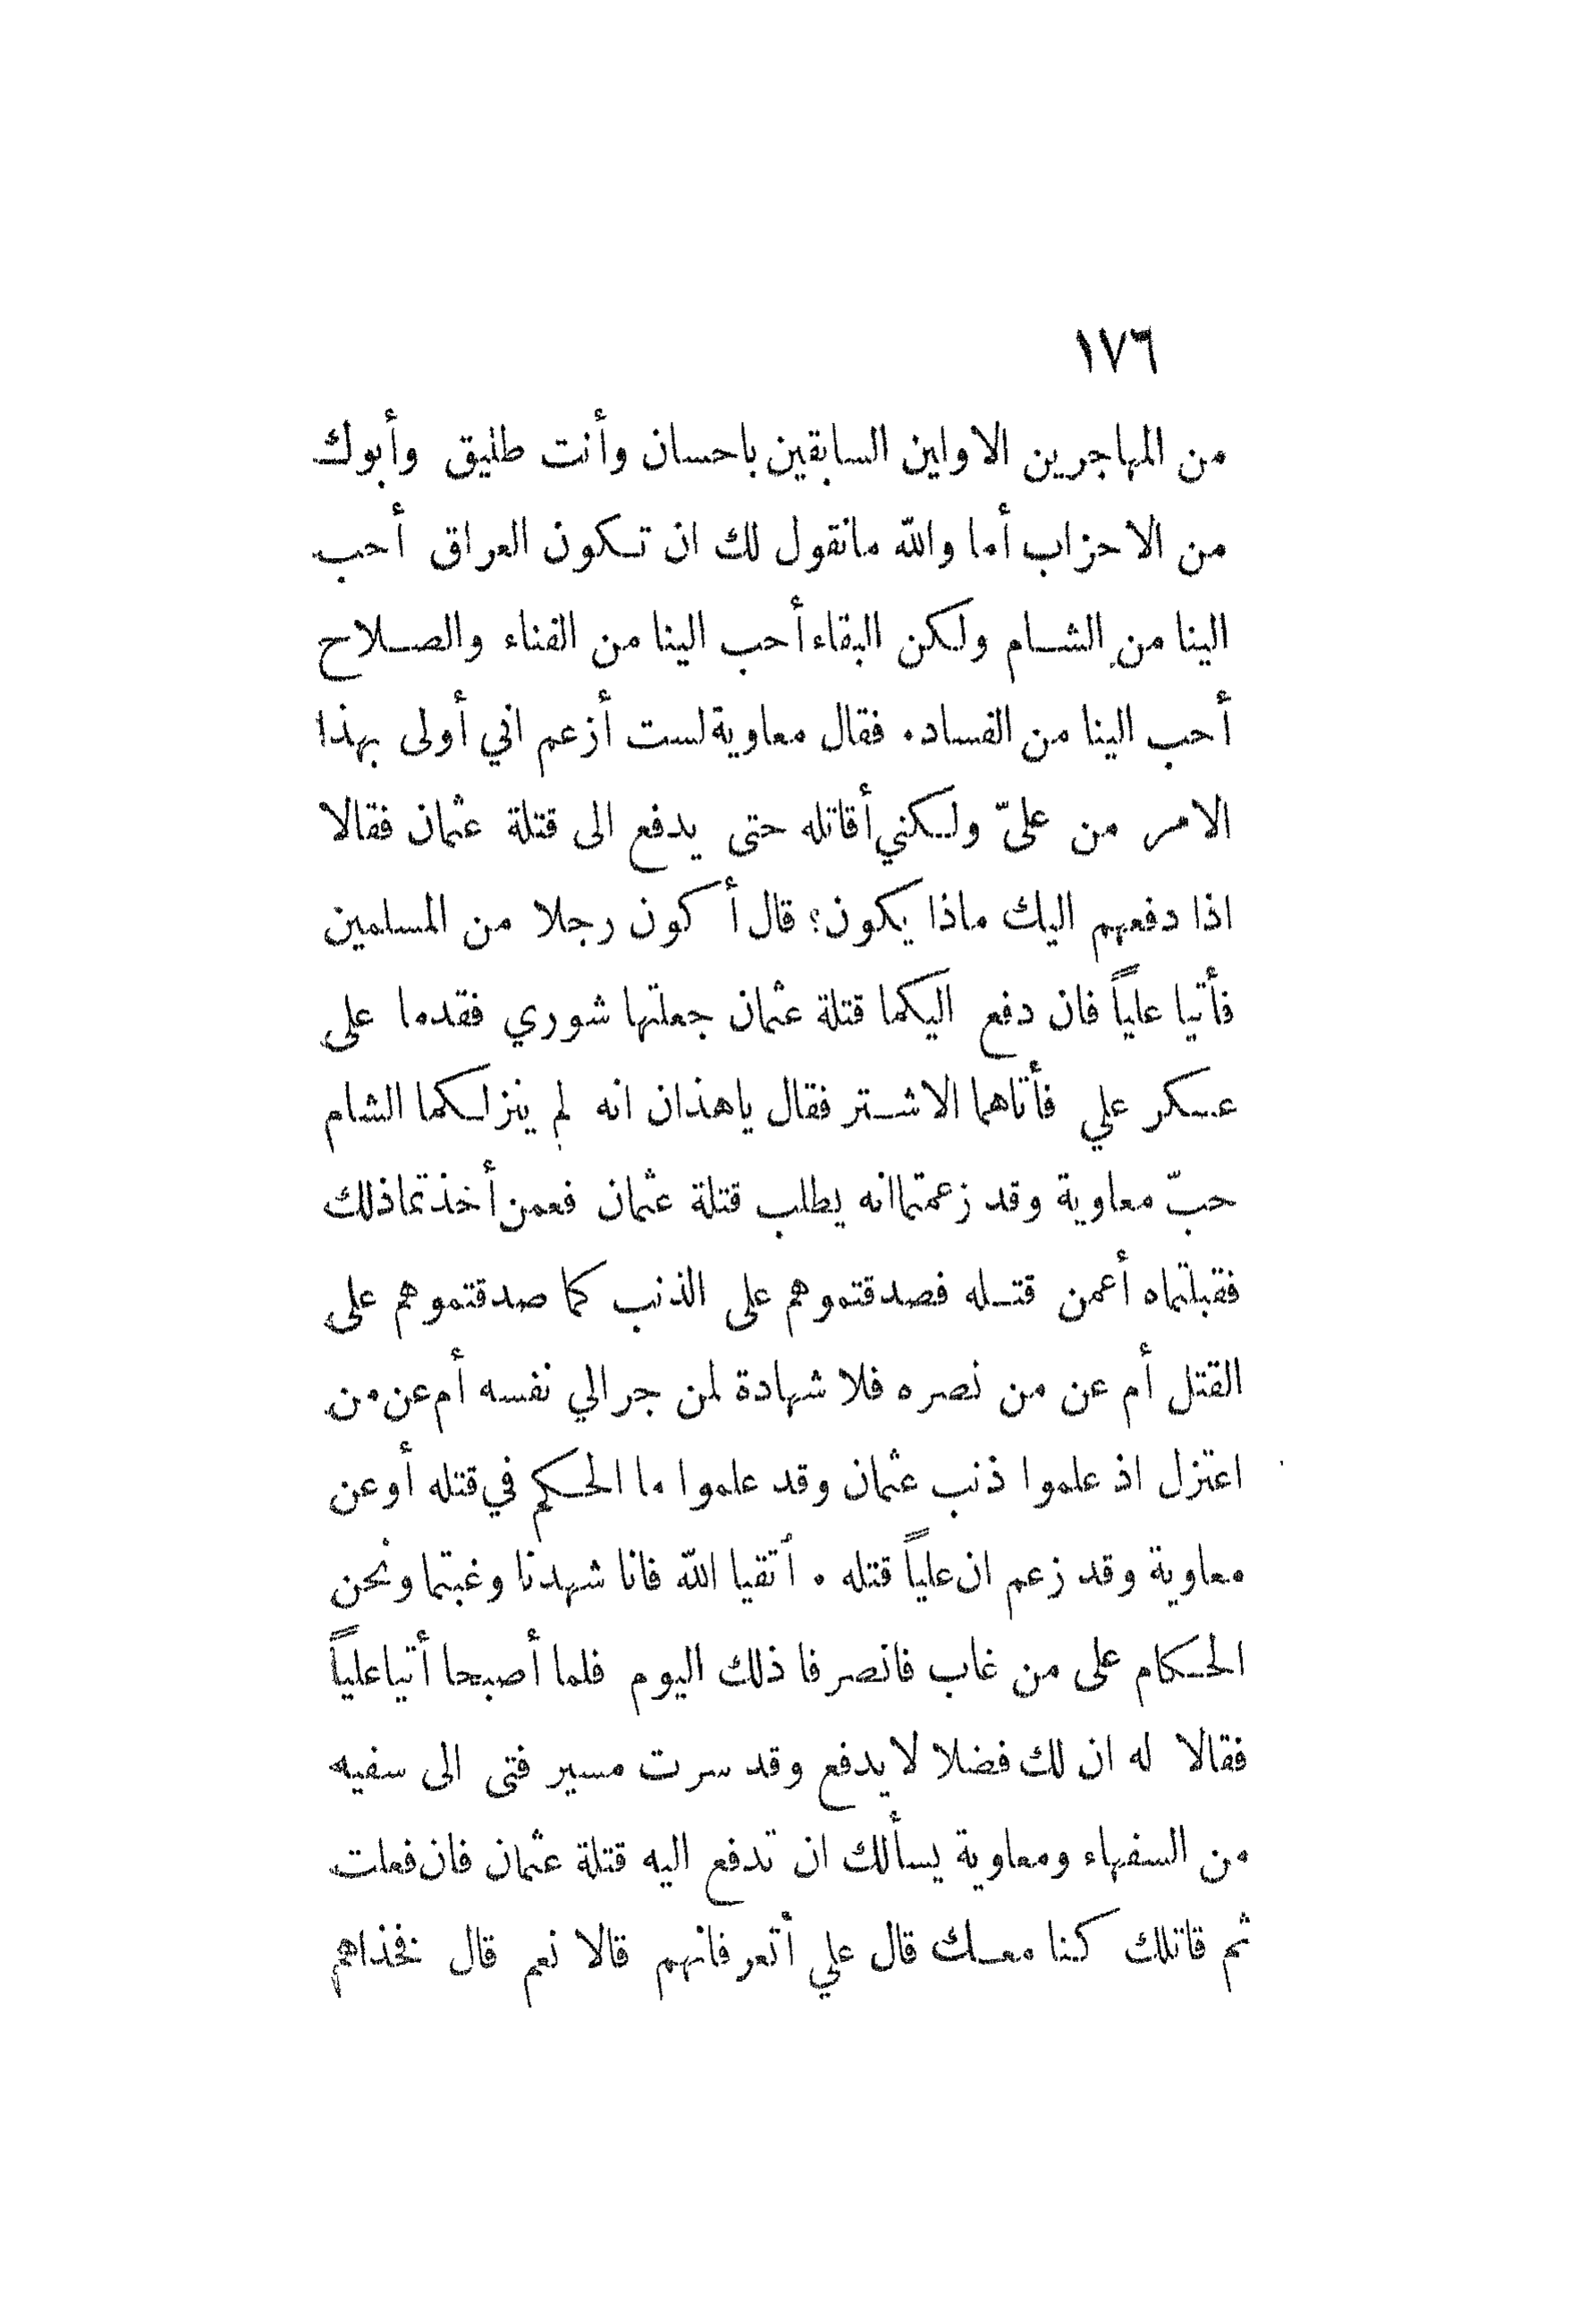 ١٧٦
من المهاجرين الاولين السابقين باحسان وأنت طليق وأبوك
من الاحزاب أما والله مانقول لك ان تكون العراق أحب
الينا من الشام ولكن البقاء أحب الينا من الفناء والصلاح
أحب الينا من الفساد. فقال معاوية لست أزعم اني أولى بهذا
الامر من علىّ ولكني أقاتله حتى يدفع الى قتلة عثمان فقالا
اذا دفعهم اليك ماذا يكون؟ قال أكون رجلا من المسلمين
فأتيا علياً فان دفع اليكما قتلة عثمان جعلتها شوري فقدما على
عسكر علي فأتاهما الاشتر فقال ياهذان انه لم ينزلكما الشام
حبّ معاوية وقد زعمتماانه يطلب قتلة عثمان فعمن أخذتماذلك
فقبلتماه أعمن قتله فصدقتموهم على الذنب كما صدقتموهم على
القتل أم عن من نصره فلا شهادة لمن جر الي نفسه أم عن من
اعتزل اذ علموا ذنب عثمان وقد علموا ما الحكم في قتله أوعن
معاوية وقد زعم ان علياً قتله . أتقيا الله فانا شهدنا وغبتما ونحن
الحكام على من غاب فانصرفا ذلك اليوم فلما أصبحا أتياعلياً
فقالا له ان لك فضلا لا يدفع وقد سرت مسير فتى الى سفيه
من السفهاء ومعاوية يسألك ان تدفع اليه قتلة عثمان فان فعلت
ثم قاتلك كنا معك قال علي أتعرفانهم قالا نعم قال فخذاهم